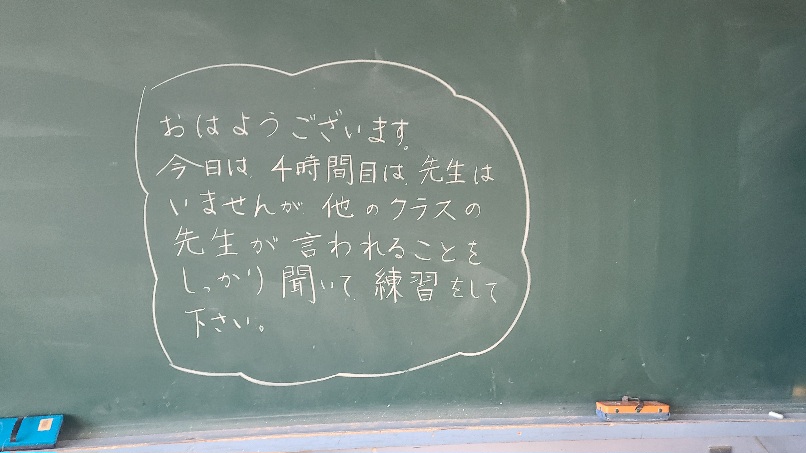 おはようございます。
今日は、4時間目は、先生は
いませんが、他のクラスの
先生が言われることを
しっかり聞いて、練習をして
下さい。